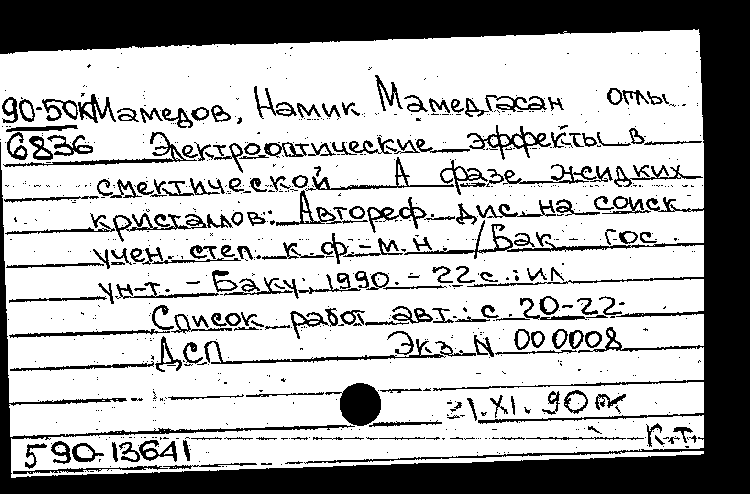 90-50к Мамедов, Намик Мамедгасан оглы
6836 Электрооптические эффекты в
смектической А фазе жидких
кристаллов: Автореф. дис. на соиск.
учен. степ. к.ф.-м.н. / Бак. гос.
ун-т. - Баку, 1990. - 22 с.: ил
Список работ авт.: с. 20-22.
ДСП Экз. N 000008
21.XI.90
К.Т.
590-13641